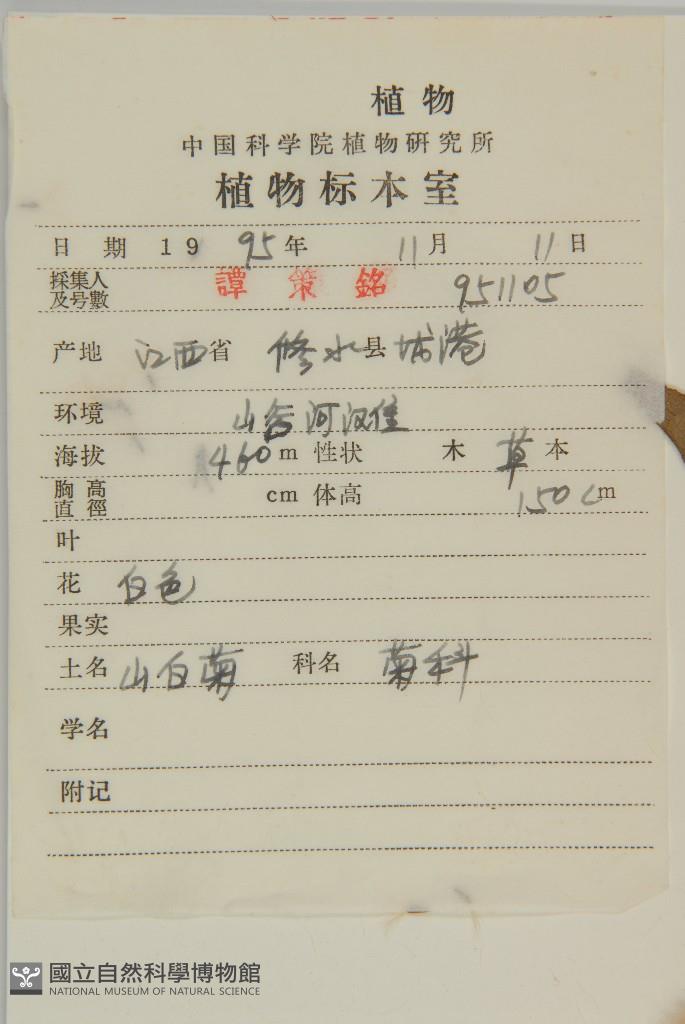 植物
中国科学院植物研究所
植物标本室
日期 19 95年 11月 11日
採集人及号數 譚策銘 951105
产地 江西省 修水县 港
环境 山谷河
海拔 460 m 性状 木 草本
胸高直徑 cm 体高 150 cm
叶
花 白色
果实
土名 山白菊 科名 菊科
学名
附记
國立自然科學博物館
NATIONAL MUSEUM OF NATURAL SCIENCE